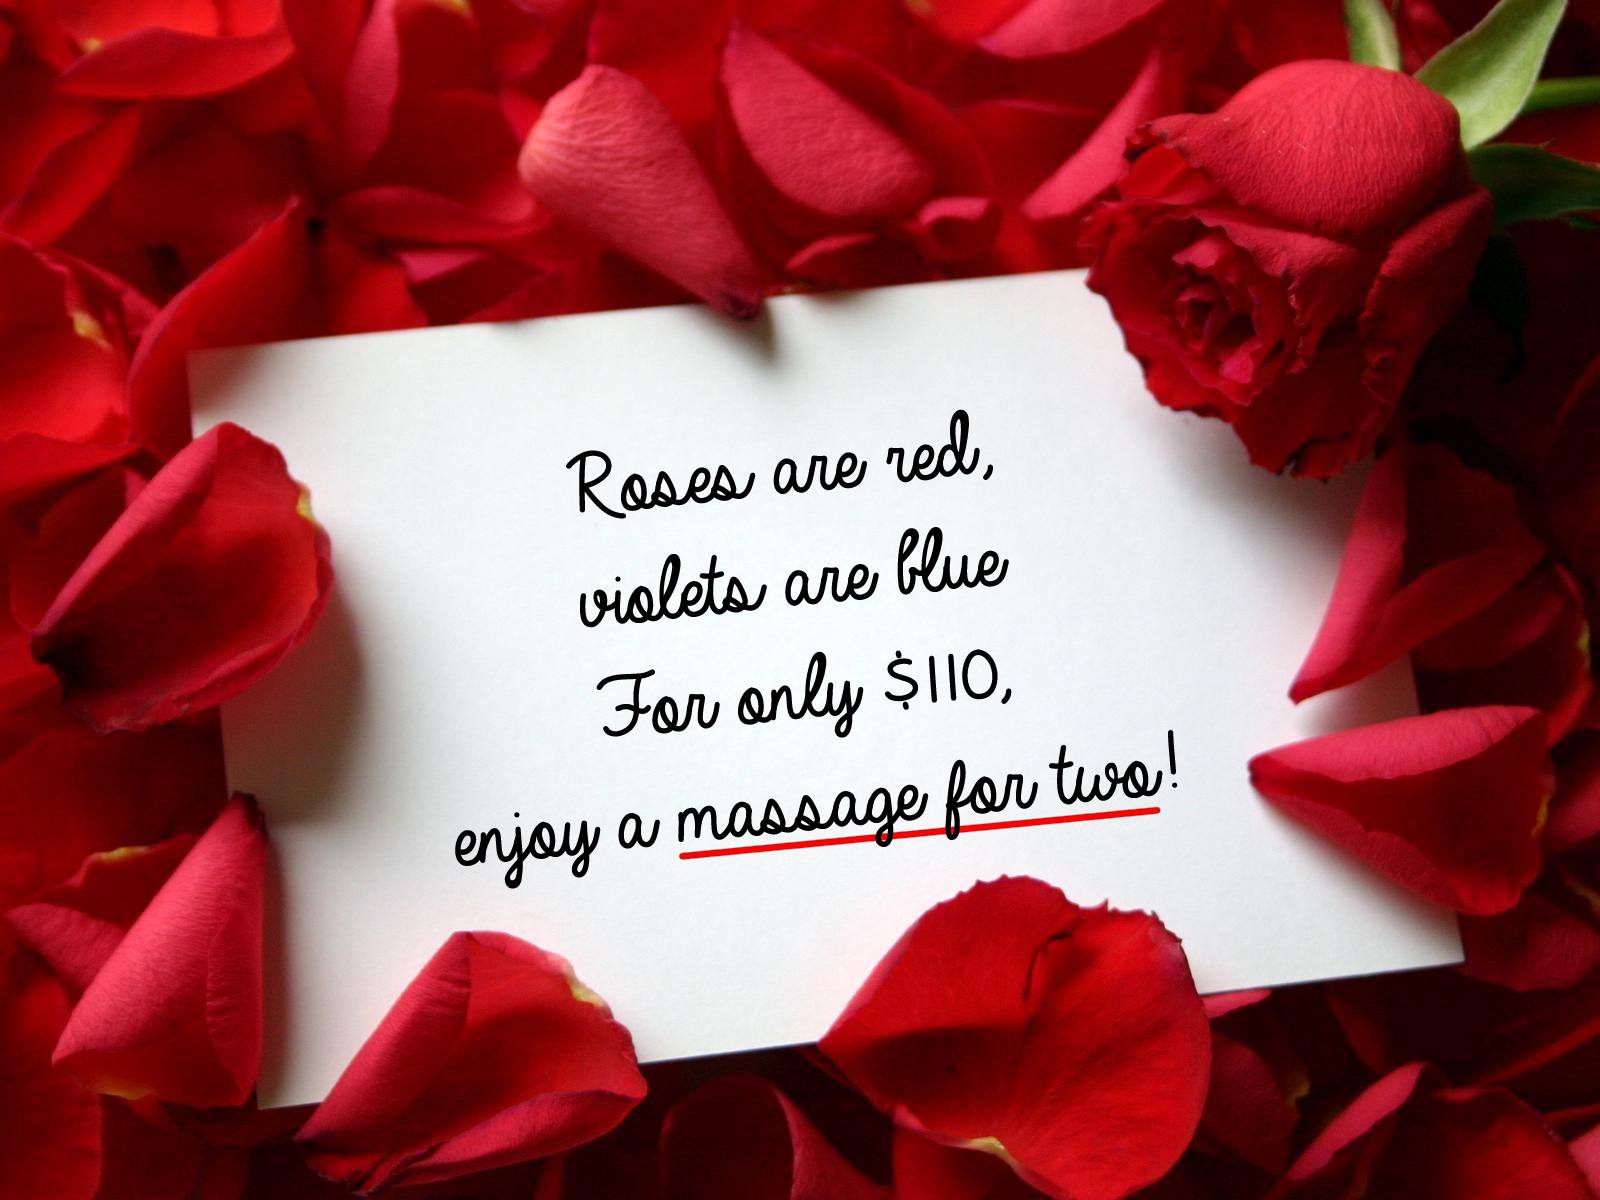 Roses are red,
violets are blue
For only $110,
enjoy a massage for two!